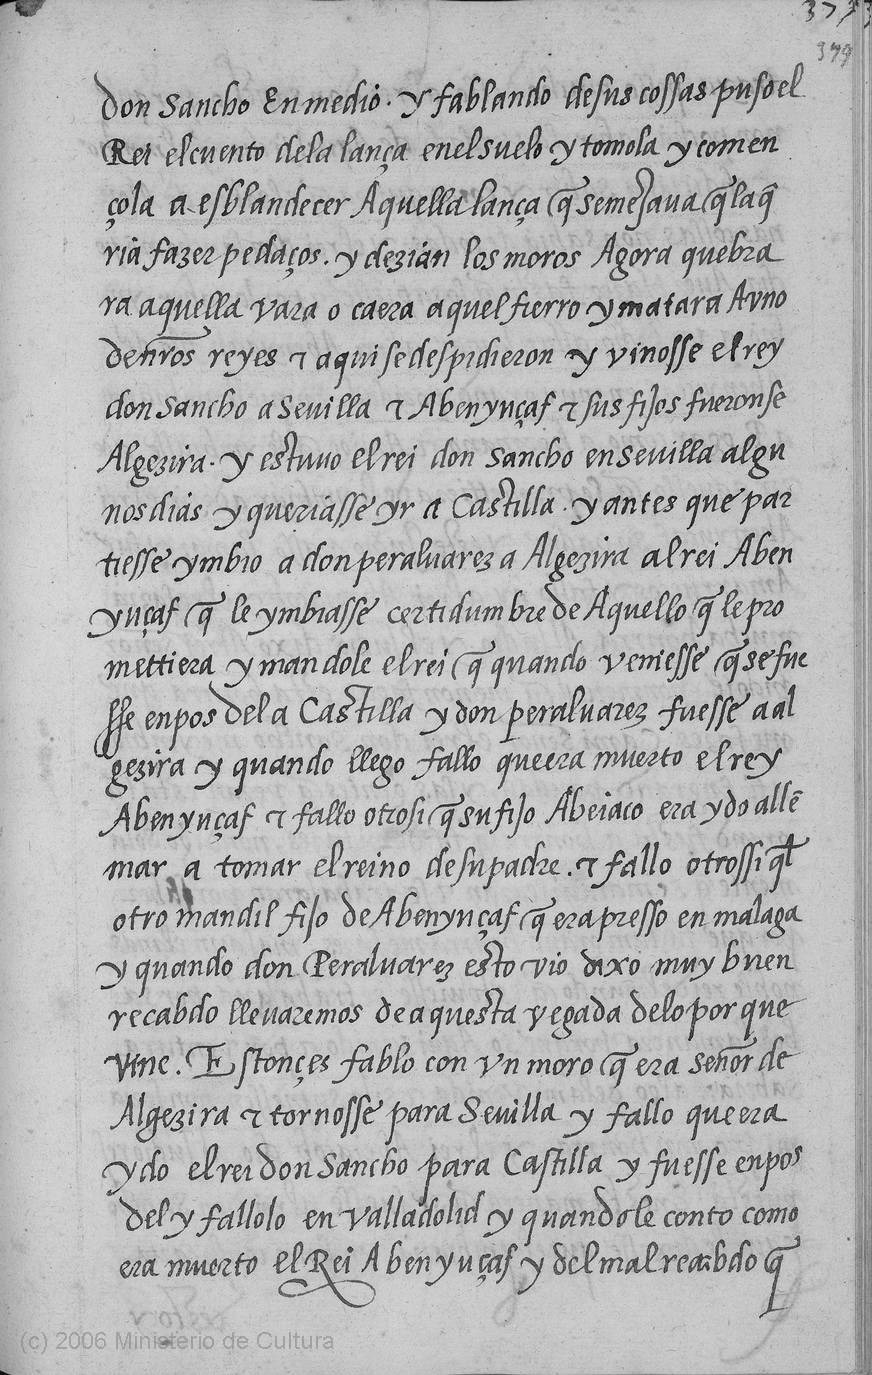 373
379
don Sancho En medio. y fablando de sus cossas puso el
Rei el cuento dela lança en el suelo y tomola y comen
çola a esblandecer Aquella lança q̃ semejaua q̃ la q̃
ria fazer pedaços. y dezian los moros Agora quebra
ra aquella vara o caera aquel fierro y matara A vno
de nr̃os reyes τ aqui se despidieron y vinosse el rey
don Sancho a Sevilla τ Abenyuçaf τ sus fijos fueronse
Algezira. y estuuo el rei don sancho en seuilla algu
nos dias y queriasse yr a Castilla. y antes que par
tiesse ymbio a don peraluarez a Algezira al rei Aben
yuçaf q̃ le ymbiasse certidumbre de Aquello q̃ le pro
mettiera y mandole el rei q̃ quando veniesse q̃ se fue
sse en pos del a Castilla y don peraluarez fuesse a al
gezira y quando llego fallo que era muerto el rey
Abenyuçaf τ fallo otrosi q̃ su fijo Abeiaco era ydo allẽ
mar a tomar el reino de su padre. τ fallo otrossi q̃l
otro mandil fijo de Abenyuçaf q̃ era presso en malaga
y quando don Peraluarez esto vio dixo muy buen
recabdo lleuaremos de aquesta vegada de lo por que
vine. Estonçes fablo con vn moro q̃ era señor de
Algezira τ tornosse para Sevilla y fallo que era
ydo el rei don Sancho para Castilla y fuesse en pos
del y fallolo en valladolid y quando le conto como
era muerto el Rei Abenyuçaf y del mal recabdo q̃
(c) 2006 Ministerio de Cultura